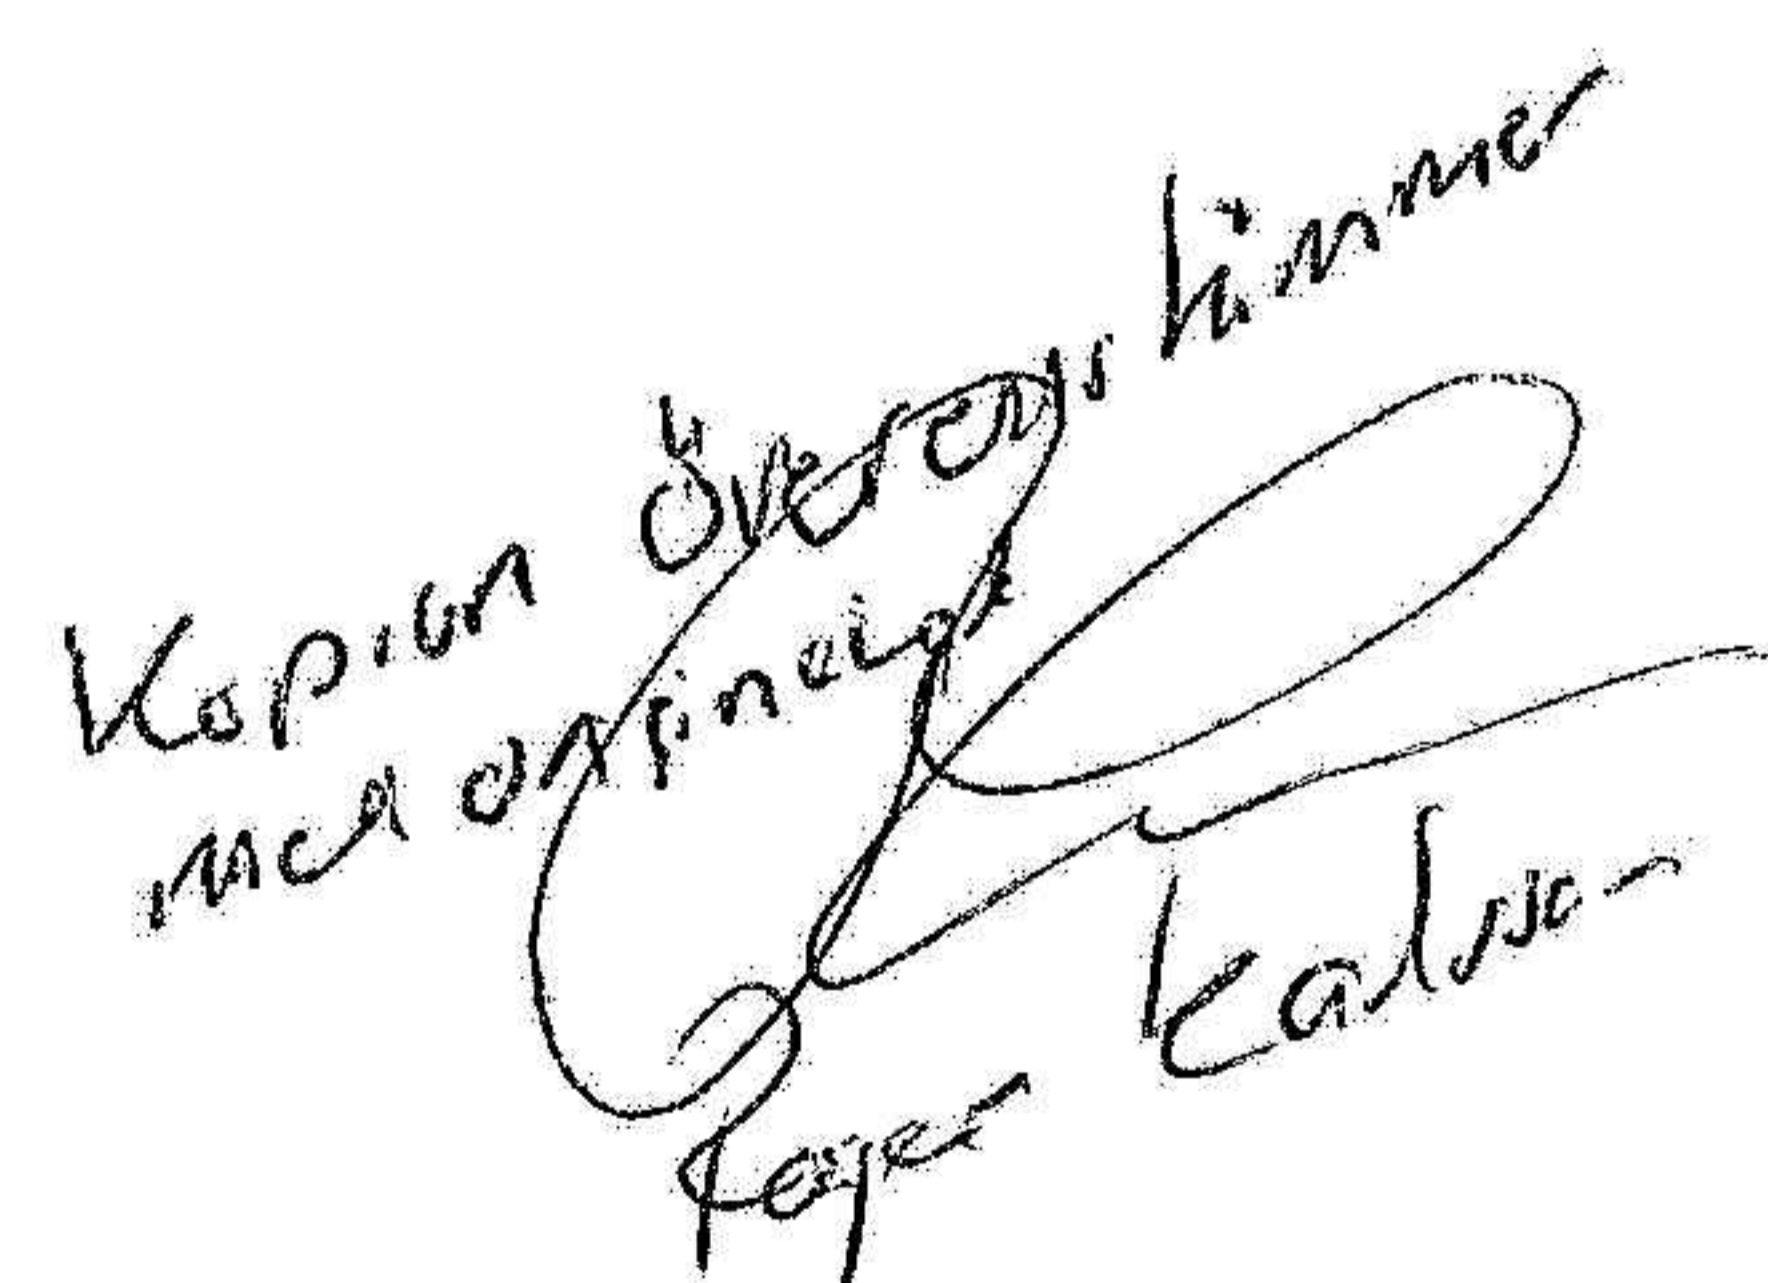 Kopian överens stämmer
med orginalet
Roger Karlsson